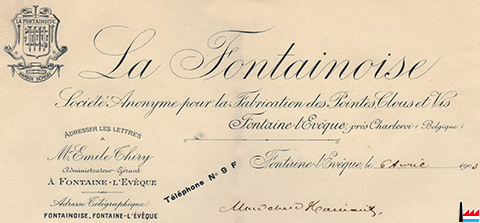 LA FONTAINOISE
MARQUE DÉPOSÉE
La Fontainoise
Société Anonyme pour la Fabrication des Pointes, Clous et Vis
Fontaine-l'Evêque, près Charleroi (Belgique)
ADRESSER LES LETTRES
A
Mr Emile Thiry
Administrateur-Gérant
À FONTAINE-L'EVÊQUE
Adresse Télégraphique:
FONTAINOISE-FONTAINE-L'ÉVÊQUE
Téléphone N° 9 F
Fontaine-l'Evêque, le 6 Avril 1903